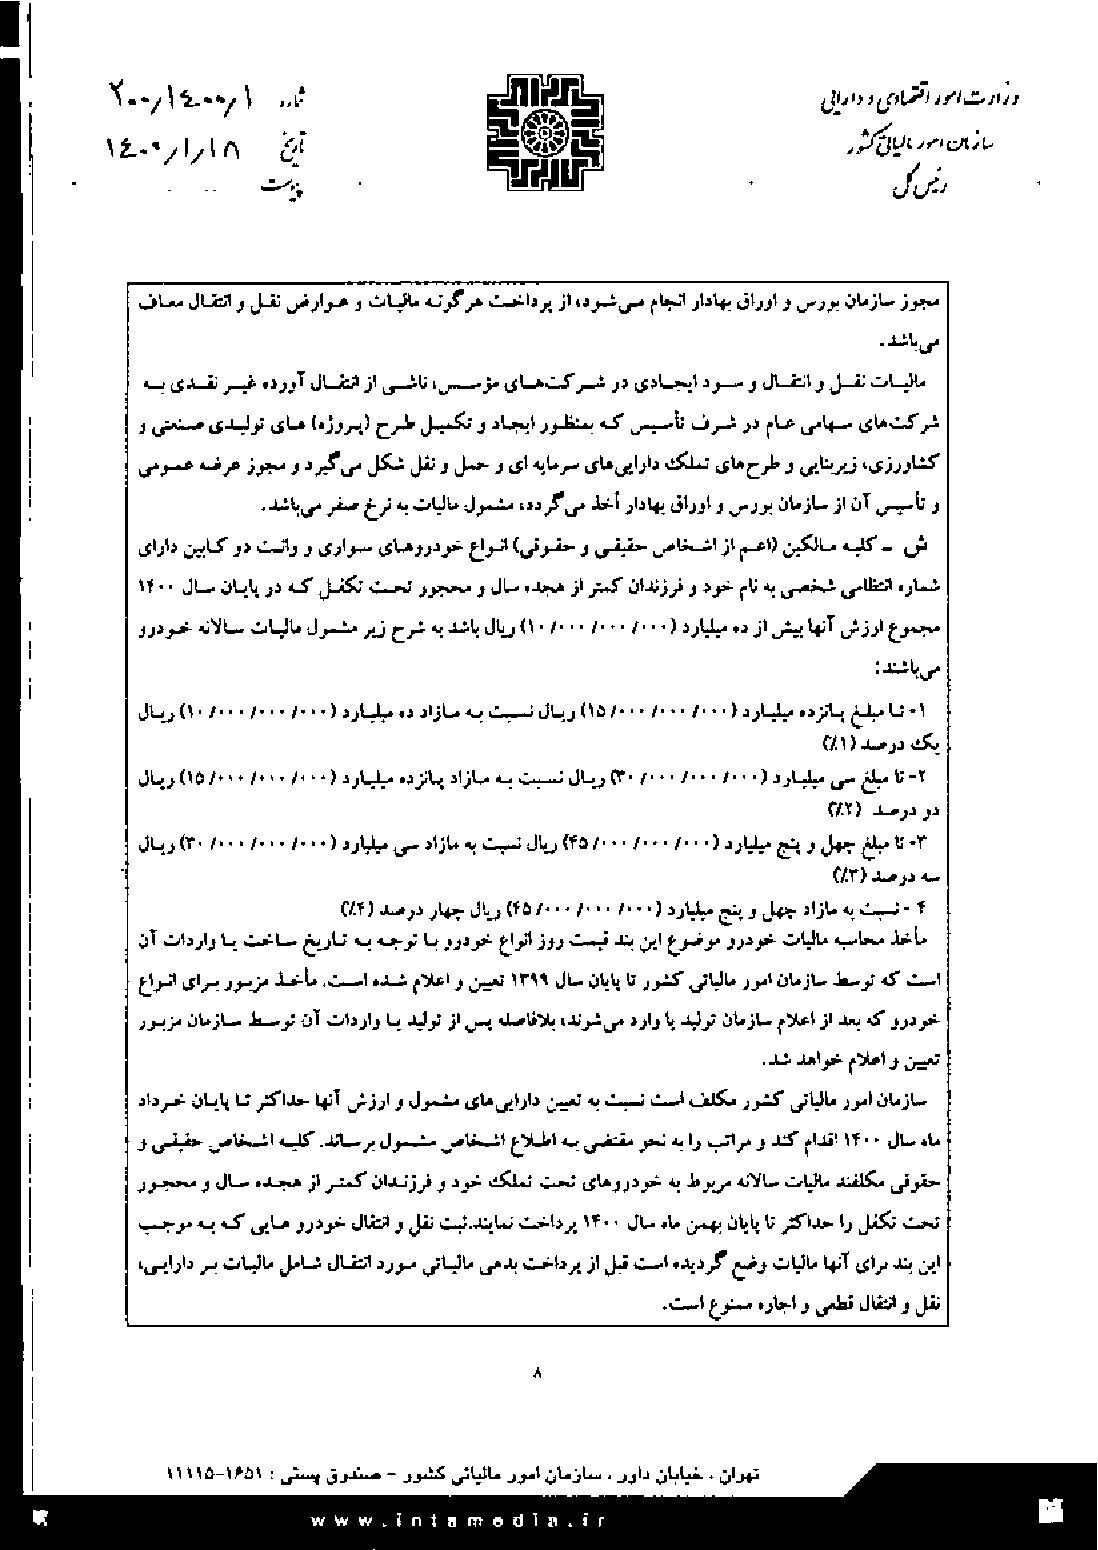 وزارت امور اقتصادی و دارایی
سازمان امور مالیاتی کشور
رئیس کل
شماره ۲۰۰/۱۴۰۰/۱
تاریخ ۱۴۰۰/۱/۱۸
پیوست
مجوز سازمان بورس و اوراق بهادار انجام می‌شود، از پرداخت هرگونه مالیات و عوارض نقل و انتقال معاف
می‌باشد.
مالیات نقل و انتقال و سود ایجادی در شرکت‌های مؤسس، ناشی از انتقال آورده غیر نقدی به
شرکت‌های سهامی عام در شرف تأسیس که بمنظور ایجاد و تکمیل طرح (پروژه) های تولیدی صنعتی و
کشاورزی، زیربنایی و طرح‌های تملک دارایی‌های سرمایه ای و حمل و نقل شکل می‌گیرد و مجوز عرضه عمومی
و تأسیس آن از سازمان بورس و اوراق بهادار أخذ می‌گردد، مشمول مالیات به نرخ صفر می‌باشد.
ش - کلیه مالکین (اعم از اشخاص حقیقی و حقوقی) انواع خودروهای سواری و وانت دو کابین دارای
شماره انتظامی شخصی به نام خود و فرزندان کمتر از هجده سال و محجور تحت تکفل که در پایان سال ۱۴۰۰
مجموع ارزش آنها بیش از ده میلیارد (۱۰/۰۰۰/۰۰۰/۰۰۰) ریال باشد به شرح زیر مشمول مالیات سالانه خودرو
می‌باشند:
۱- تا مبلغ پانزده میلیارد (۱۵/۰۰۰/۰۰۰/۰۰۰) ریال نسبت به مازاد ده میلیارد (۱۰/۰۰۰/۰۰۰/۰۰۰) ریال
یک درصد (۱٪)
۲- تا مبلغ سی میلیارد (۳۰/۰۰۰/۰۰۰/۰۰۰) ریال نسبت به مازاد پانزده میلیارد (۱۵/۰۰۰/۰۰۰/۰۰۰) ریال
دو درصد (۲٪)
۳- تا مبلغ چهل و پنج میلیارد (۴۵/۰۰۰/۰۰۰/۰۰۰) ریال نسبت به مازاد سی میلیارد (۳۰/۰۰۰/۰۰۰/۰۰۰) ریال
سه درصد (۳٪)
۴- نسبت به مازاد چهل و پنج میلیارد (۴۵/۰۰۰/۰۰۰/۰۰۰) ریال چهار درصد (۴٪)
مأخذ محاسبه مالیات خودرو موضوع این بند قیمت روز انواع خودرو با توجه به تاریخ ساخت یا واردات آن
است که توسط سازمان امور مالیاتی کشور تا پایان سال ۱۳۹۹ تعیین و اعلام شده است. مأخذ مزبور برای انواع
خودرو که بعد از اعلام سازمان تولید یا وارد می‌شوند، بلافاصله پس از تولید یا واردات آن توسط سازمان مزبور
تعیین و اعلام خواهد شد.
سازمان امور مالیاتی کشور مکلف است نسبت به تعیین دارایی‌های مشمول و ارزش آنها حداکثر تا پایان خرداد
ماه سال ۱۴۰۰ اقدام کند و مراتب را به نحو مقتضی به اطلاع اشخاص مشمول برساند. کلیه اشخاص حقیقی و
حقوقی مکلفند مالیات سالانه مربوط به خودروهای تحت تملک خود و فرزندان کمتر از هجده سال و محجور
تحت تکفل را حداکثر تا پایان بهمن ماه سال ۱۴۰۰ پرداخت نمایند.ثبت نقل و انتقال خودرو هایی که به موجب
این بند برای آنها مالیات وضع گردیده است قبل از پرداخت بدهی مالیاتی مورد انتقال شامل مالیات بر دارایی،
نقل و انتقال قطعی و اجاره ممنوع است.
۸
تهران ، خیابان داور ، سازمان امور مالیاتی کشور - صندوق پستی : ۱۶۵۱-۱۱۱۱۵
www.intamedia.ir